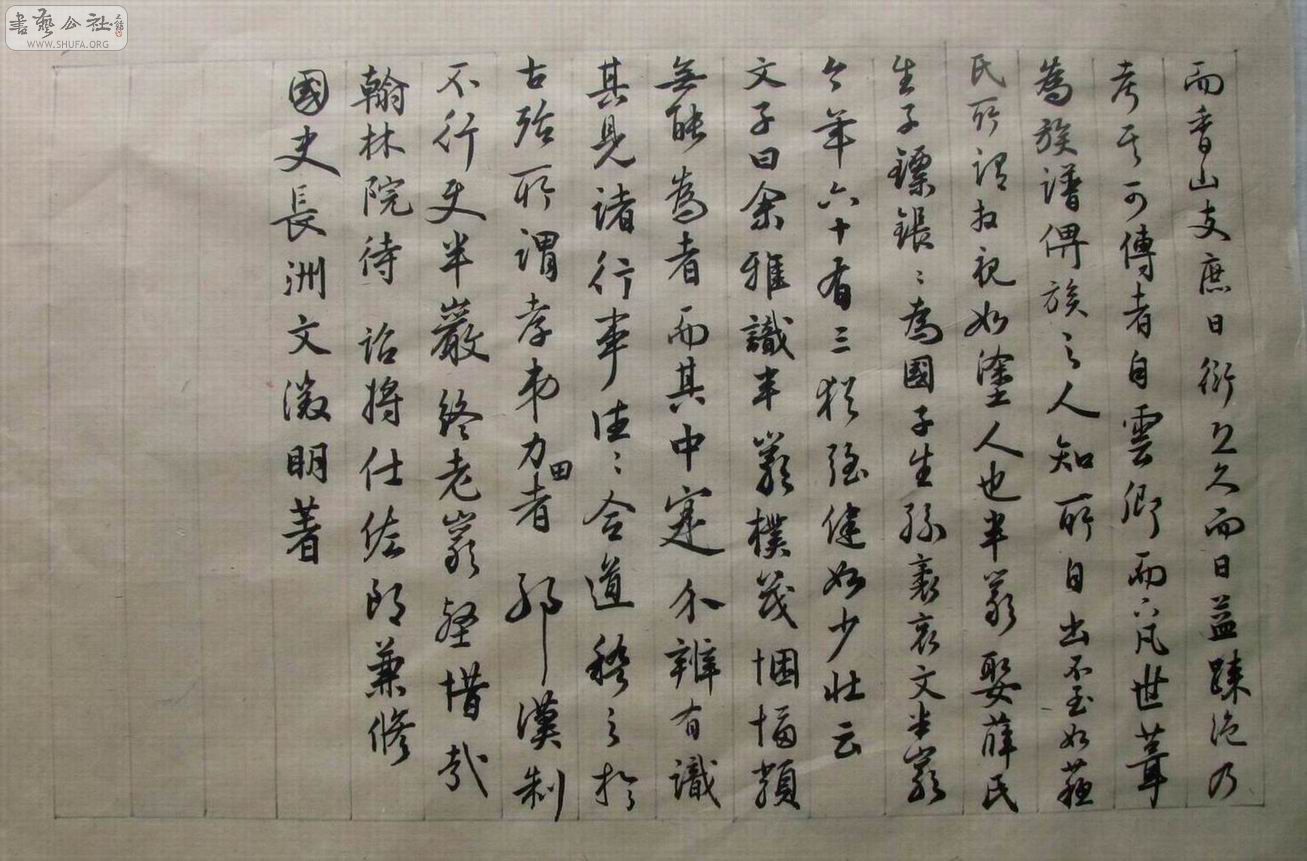 而香山支庶日衍久久而日益疎洫乃
考其可傳者自雲卿而下凡世葺
為族譜俾族之人知所自出不至如蘇
氏所謂相視如塗人也半巖娶薛民
生子鏢銀〻為國子生孫裏裒文半巖
今年六十有三猶強健如少壯云
文子曰余雅識半巖樸茂悃愊類
無能為者而其中寔介辨有識
其見諸行事往〻合道稽之於
古殆所謂孝弟力田者耶漢制
不行史半巖終老巖壑惜哉
翰林院待詔將仕佐郎兼修
國史長洲文徵明著
書藝公社
WWW.SHUFA.ORG